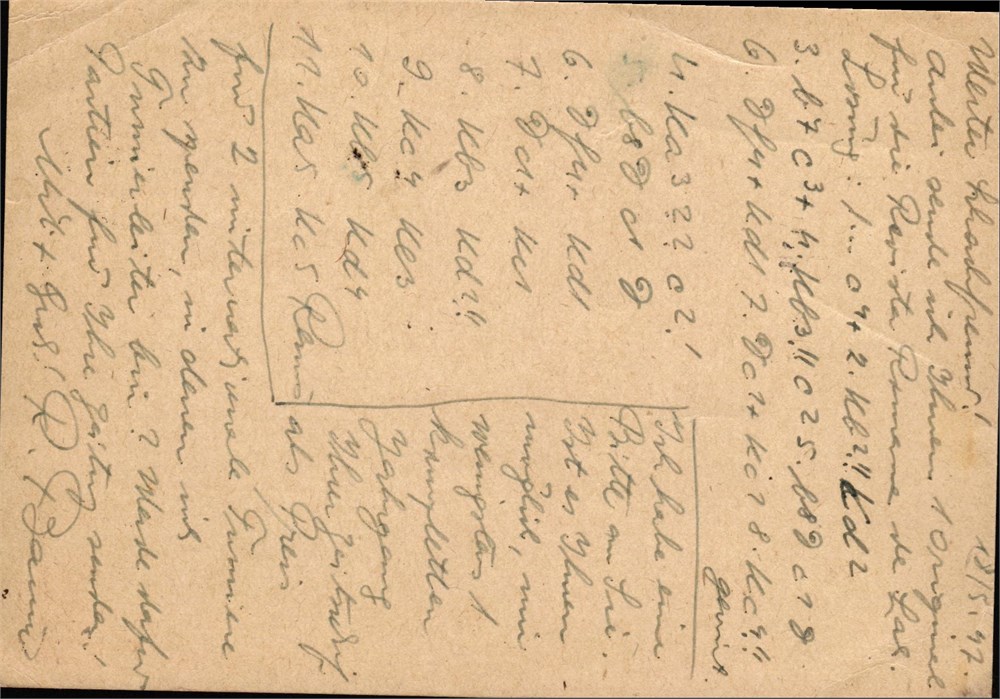 18/5. 47.
Werter Schachfreund!
Anbei sende ich Ihnen 1 Original
für die Revista Romana de Sah.
Lösung: 1... c4+ 2. Kb2!! Kd2
3. b7 c3+ 4. Kb3!! c2 5. b8D c1D
6. Df4+ Kd1 7. Dc1+ Kc1 8. Kc4!!
gewinnt.
4. Ka3?? c2!
5. b8D c1D
6. Df4+ Kd1
7. Dc1+ Kc1
8. Kb3 Kd2!!
9. Kc4 Ke3
10. Kb5 Kd4
11. Ka5 Kc5 Remis
Ich habe eine
Bitte an Sie.
Ist es Ihnen
möglich, mir
wenigstens 1
kompletten
Jahrgang
Ihrer Zeitschrift
als Preis
für 2 internationale Turniere
zu spenden, in denen ich
Turnierleiter bin? Werde dafür
Partien für Ihre Zeitung senden!
Mit Gruß!